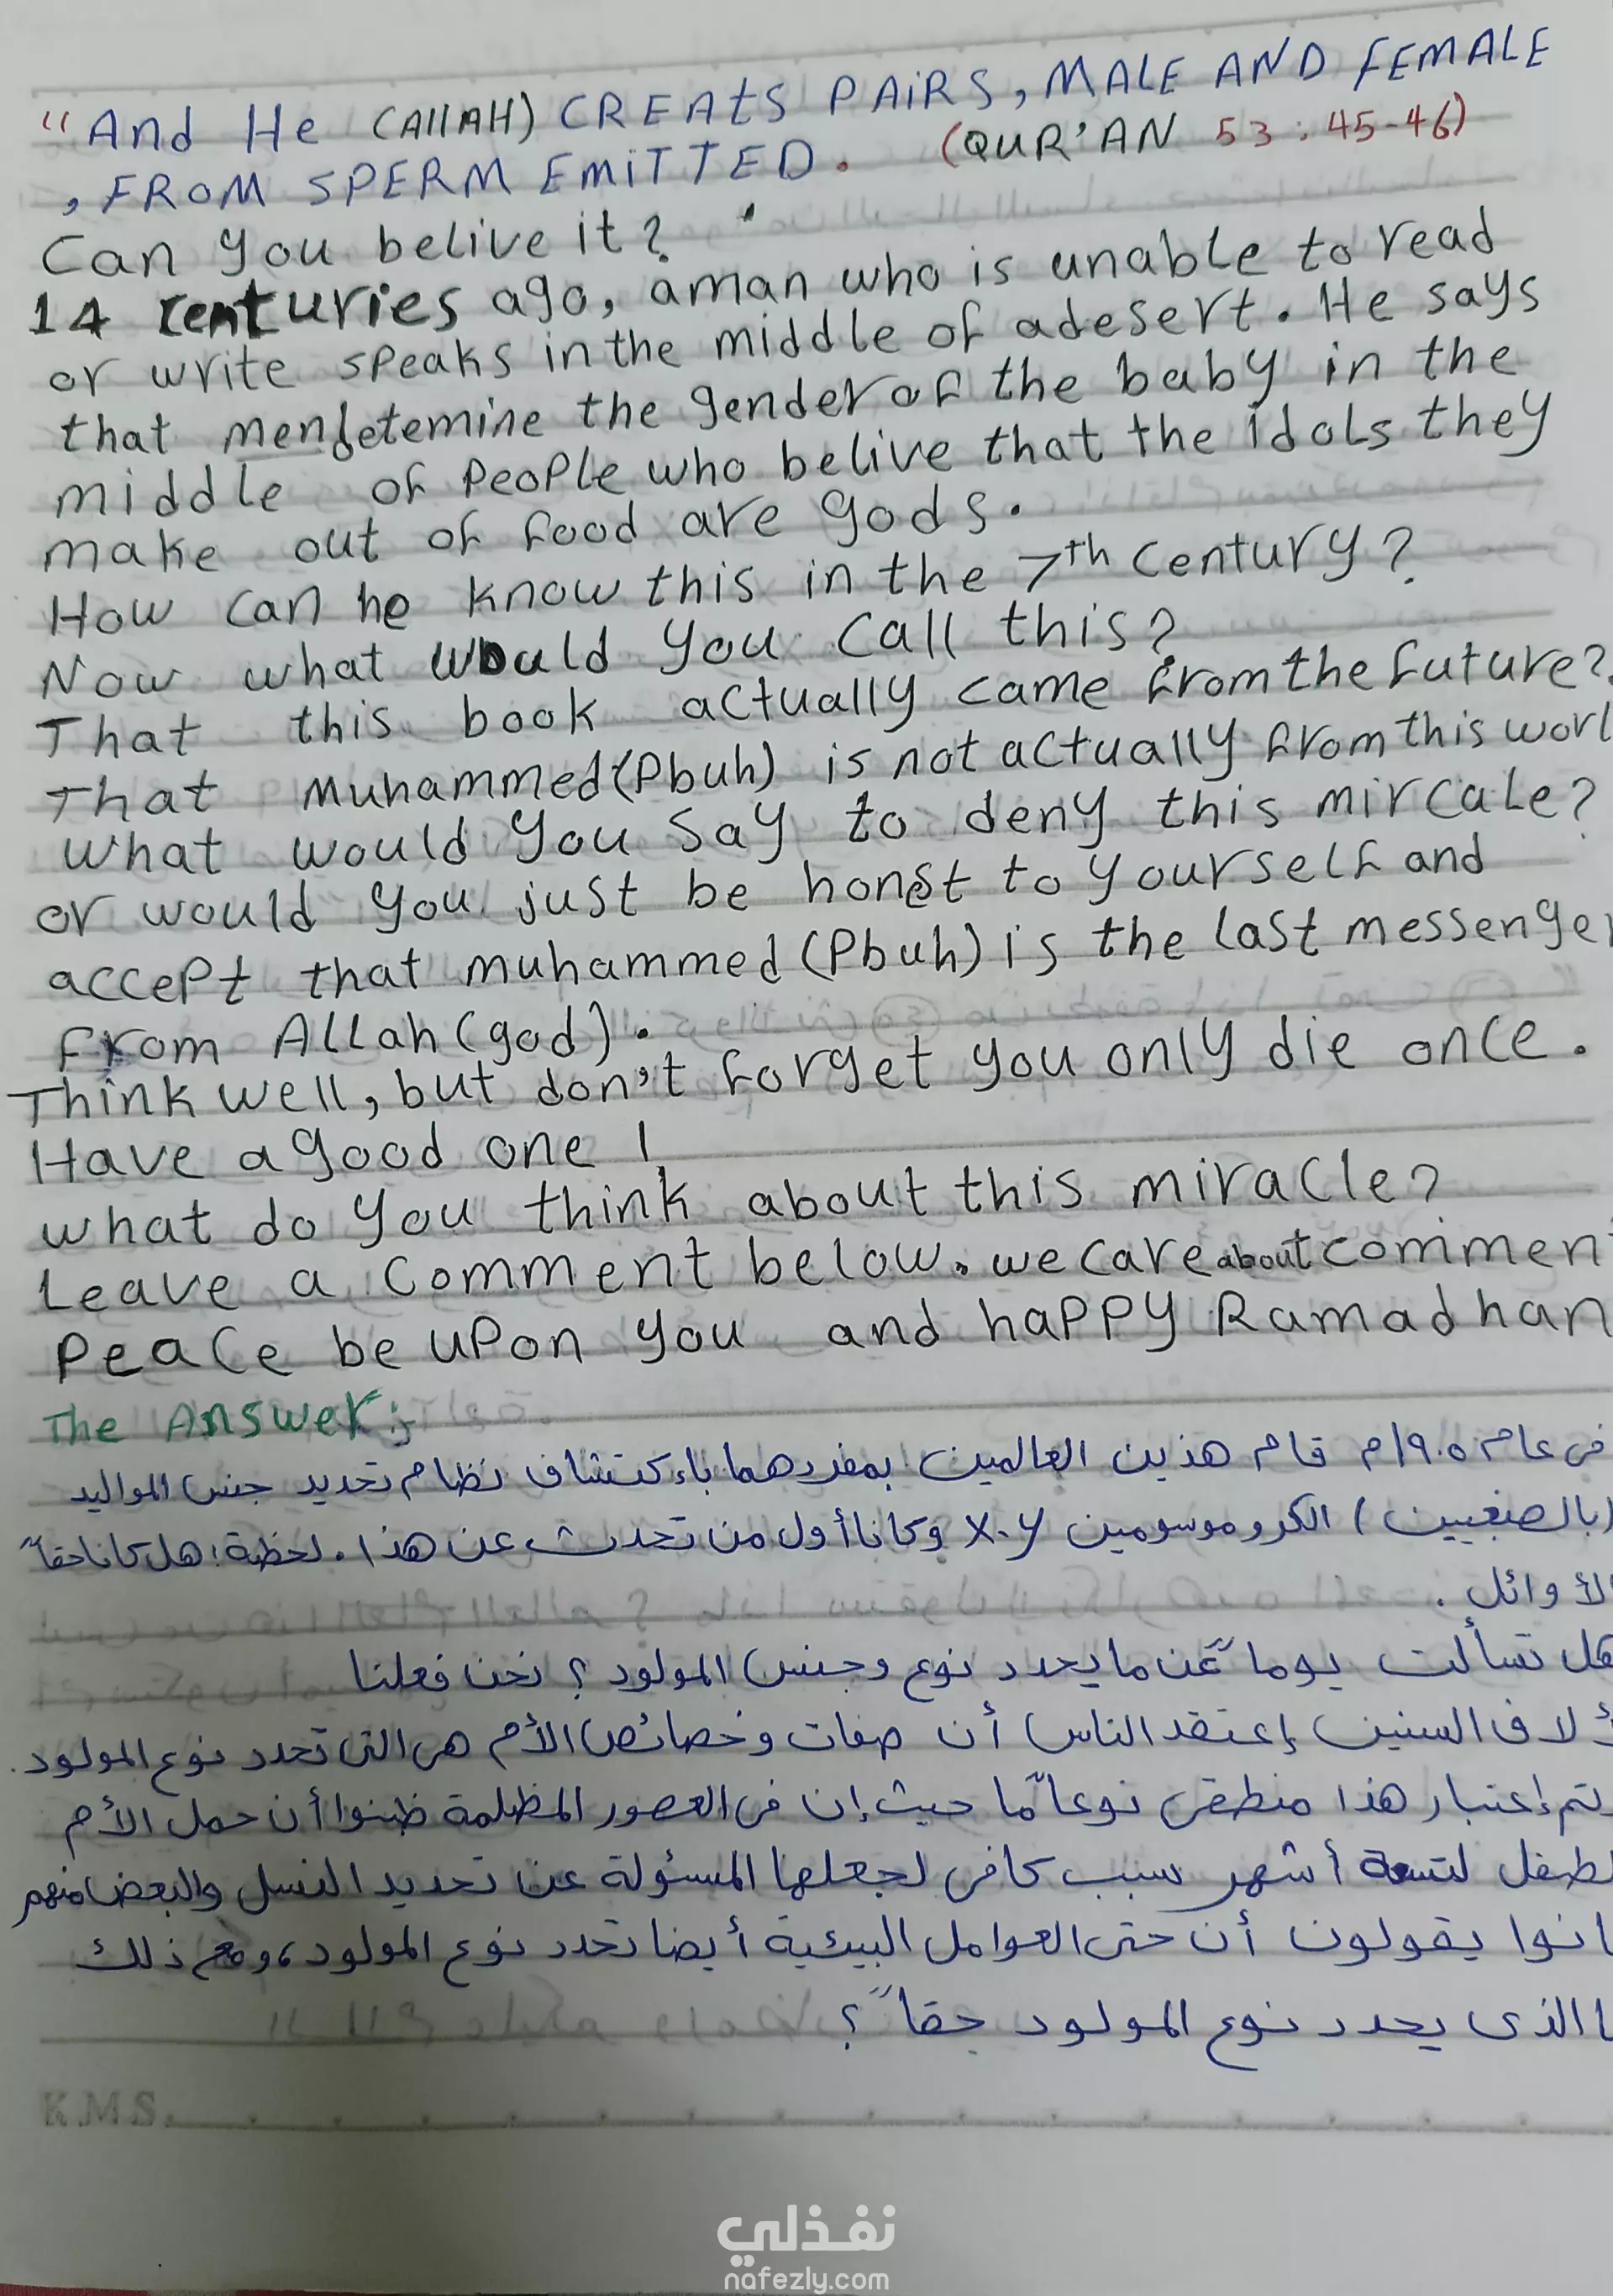 "And He (AllAH) CREAtS PAiRS, MALE AND FEMALE
, FROM SPERM EMiTTED. (QUR'AN 53:45-46)
Can you belive it?
14 centuries ago, aman who is unable to read
or write speaks in the middle of adesert. He says
that men detemine the gender of the baby in the
middle of people who belive that the idols they
make out of food are gods.
How can he know this in the 7th century?
Now what would you call this?
That this book actually came from the future?
That Muhammed (Pbuh) is not actually from this worl
What would you say to deny this mircale?
or would you just be honest to yourself and
accept that muhammed (Pbuh) is the last messenger
from Allah (god).
Think well, but don't forget you only die once.
Have a good one!
what do you think about this miracle?
Leave a comment below. we care about commen
Peace be upon you and happy Ramadhan
The Answer:
فى عام ١٩٠٥م قام هذين العالمين بمفردهما باءكتشاف نظام تحديد جنس المواليد
(بالصبغيين) الكروموسومين X.y وكانا أول من تحدث عن هذا. لحظة؛ هل كانا حقاً
الأوائل.
هل تسألت يوماً عن ما يحدد نوع وجنس المولود؟ نحن فعلنا
لألاف السنين إعتقد الناس أن صفات وخصائص الأم هى التى تحدد نوع المولود.
وتم إعتبار هذا منطقى نوعاً ما حيث إن فى العصور المظلمة ظنوا أن حمل الأم
لطفل لتسعة أشهر سبب كافى لجعلها المسئولة عن تحديد النسل والبعض منهم
كانوا يقولون أن حتى العوامل البيئية أيضا تحدد نوع المولود، ومع ذلك
ما الذى يحدد نوع المولود حقاً؟
K.M.S.
نفذلي
nafezly.com